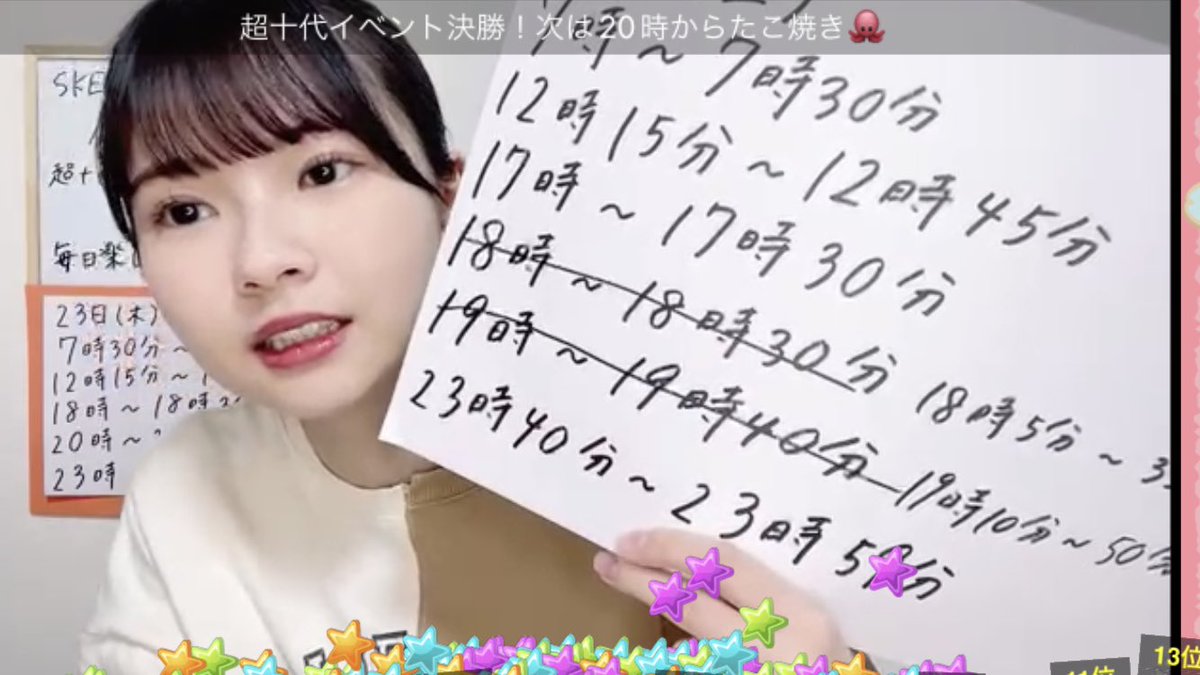 超十代イベント決勝！次は20時からたこ焼き🐙
7時～7時30分
12時15分～12時45分
17時～17時30分
18時～18時30分 18時5分～3
19時～19時40分 19時10分～50分
23時40分～23時59分
SKE
超十
毎日楽
23日(木)
7時30分～
12時15分～1
18時～18時3
20時～
23時
11位
13位